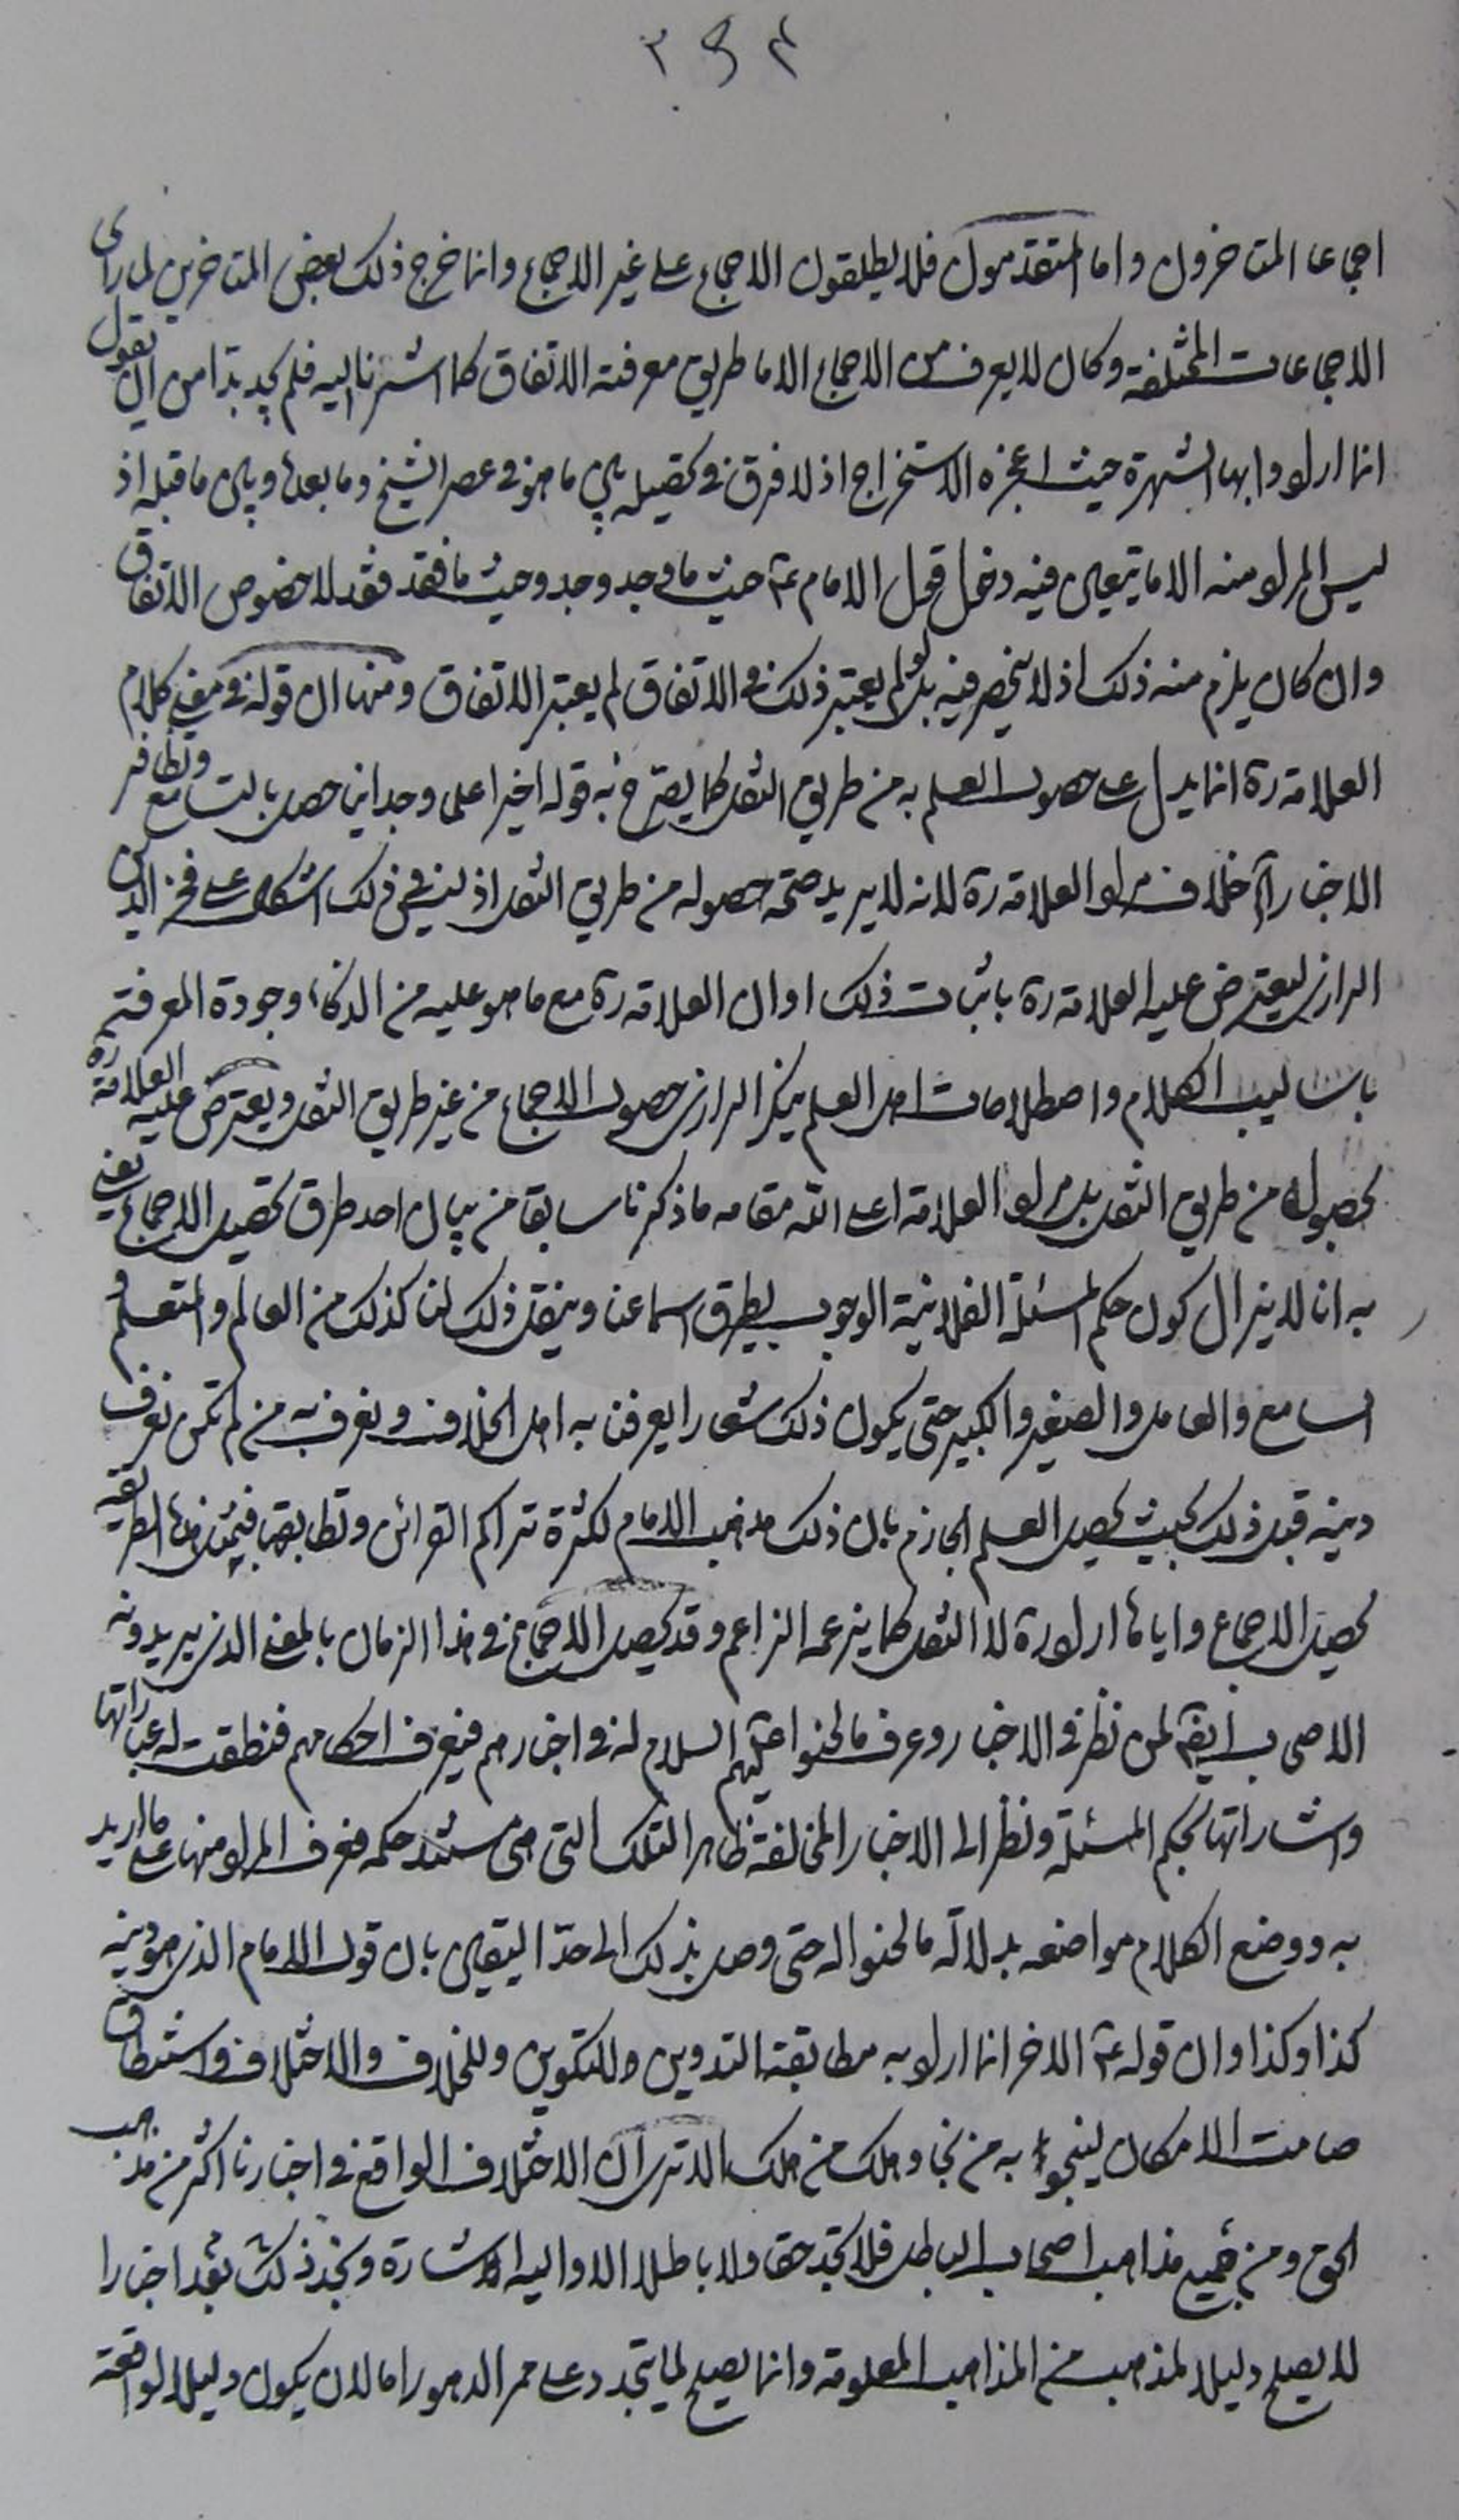 ٣٩٤
اجماعا المتاخرون واما المتقدمون فلا يطلقون الاجماع على غير الاجماع وانما خرج ذلك بعض المتاخرين لما رأى
الاجماعات المختلفة وكان لا يعرف من الاجماع الا ما طريق معرفته الاتفاق كما اشرنا اليه فلم يجد بدا من ان يقول
انما ارادوا بها الشهرة حيث اعجزه الاستخراج اذ لا فرق في تحصيله بين ما هو في عصر الشيخ وما بعده وبين ما قبله اذ
ليس المراد منه الا ما يتعين فيه دخول قول الامام عم حيث ما وجد وجد وحيث ما فقد فقد لا خصوص الاتفاق
وان كان يلزم منه ذلك اذ لا ينحصر فيه بل لو لم يعتبر ذلك في الاتفاق لم يعتبر الاتفاق ومنها ان قوله في معنى كلام
العلامة ره انما يدل على حصول العلم به من طريق النقل كما يصرح به قوله اخيرا علما وجدانيا حصل بالتسامع وتظافر
الاخبار آه خلاف مراد العلامة ره لانه لا يريد صحة حصوله من طريق النقل اذ ليس في ذلك اشكال على فخر الدين
الرازي ليعترض عليه العلامة ره باثبات ذلك او ان العلامة ره مع ما هو عليه من الذكاء وجودة المعرفة
باساليب الكلام واصطلاحات اهل العلم ينكر الرازي حصول الاجماع من غير طريق النقل ويعترض عليه العلامة ره
بحصوله من طريق النقل بل مراد العلامة اعلى الله مقامه ما ذكرنا سابقا من بيان احد طرق تحصيل الاجماع يعني
به انا لا يزال كون حكم المسئلة الفلانية الوجوب يطرق اسماعنا وينقل ذلك لنا كذلك من العالم والمتعلم و
السامع والعامل والصغير والكبير حتى يكون ذلك شعارا يعرفنا به اهل الخلاف ويعرف به من لم نكن نعرف
دينه قبل ذلك بحيث يحصل العلم الجازم بان ذلك مذهب الامام لكثرة تراكم القرائن وتطابقها فبمثل هذه الطريقة
يحصل الاجماع واياها اراد ره لا النقل كما يزعمه الزاعم وقد يحصل الاجماع في هذا الزمان بالمعنى الذي يريدونه
الاصحاب ايضا لمن نظر في الاخبار وعرف ما لحنوا عليهم السلام له في اخبارهم فيعرف احكامهم فنطقت له عباراتها
واشاراتها بحكم المسئلة ونظر الى الاخبار المخالفة ظاهرا لتلك التي هي مستند حكمه فعرف المراد منها على ما اريد
به ووضع الكلام مواضعه بدلالة ما لحنوا له حتى وصل بذلك الى حد اليقين بان قول الامام الذي هو دينه
كذا وكذا وان قوله عم الاخر انما اراد به مطابقة التدوين وللتكوين وللخلاف والاختلاف واستنطاق
صامت الامكان لينجو به من نجا وهلك من هلك الا ترى ان الاختلاف الواقع في اخبارنا اكثر من مذهب
الحق ومن جميع مذاهب اصحاب الباطل فلا تجد حقا ولا باطلا الا واليه اشارة وتجد ذلك بعد اخبارا
لا يصلح دليلا لمذهب من المذاهب المعلومة وانما يصلح لما يتجدد على ممر الدهور اما لان يكون دليلا لواقعة